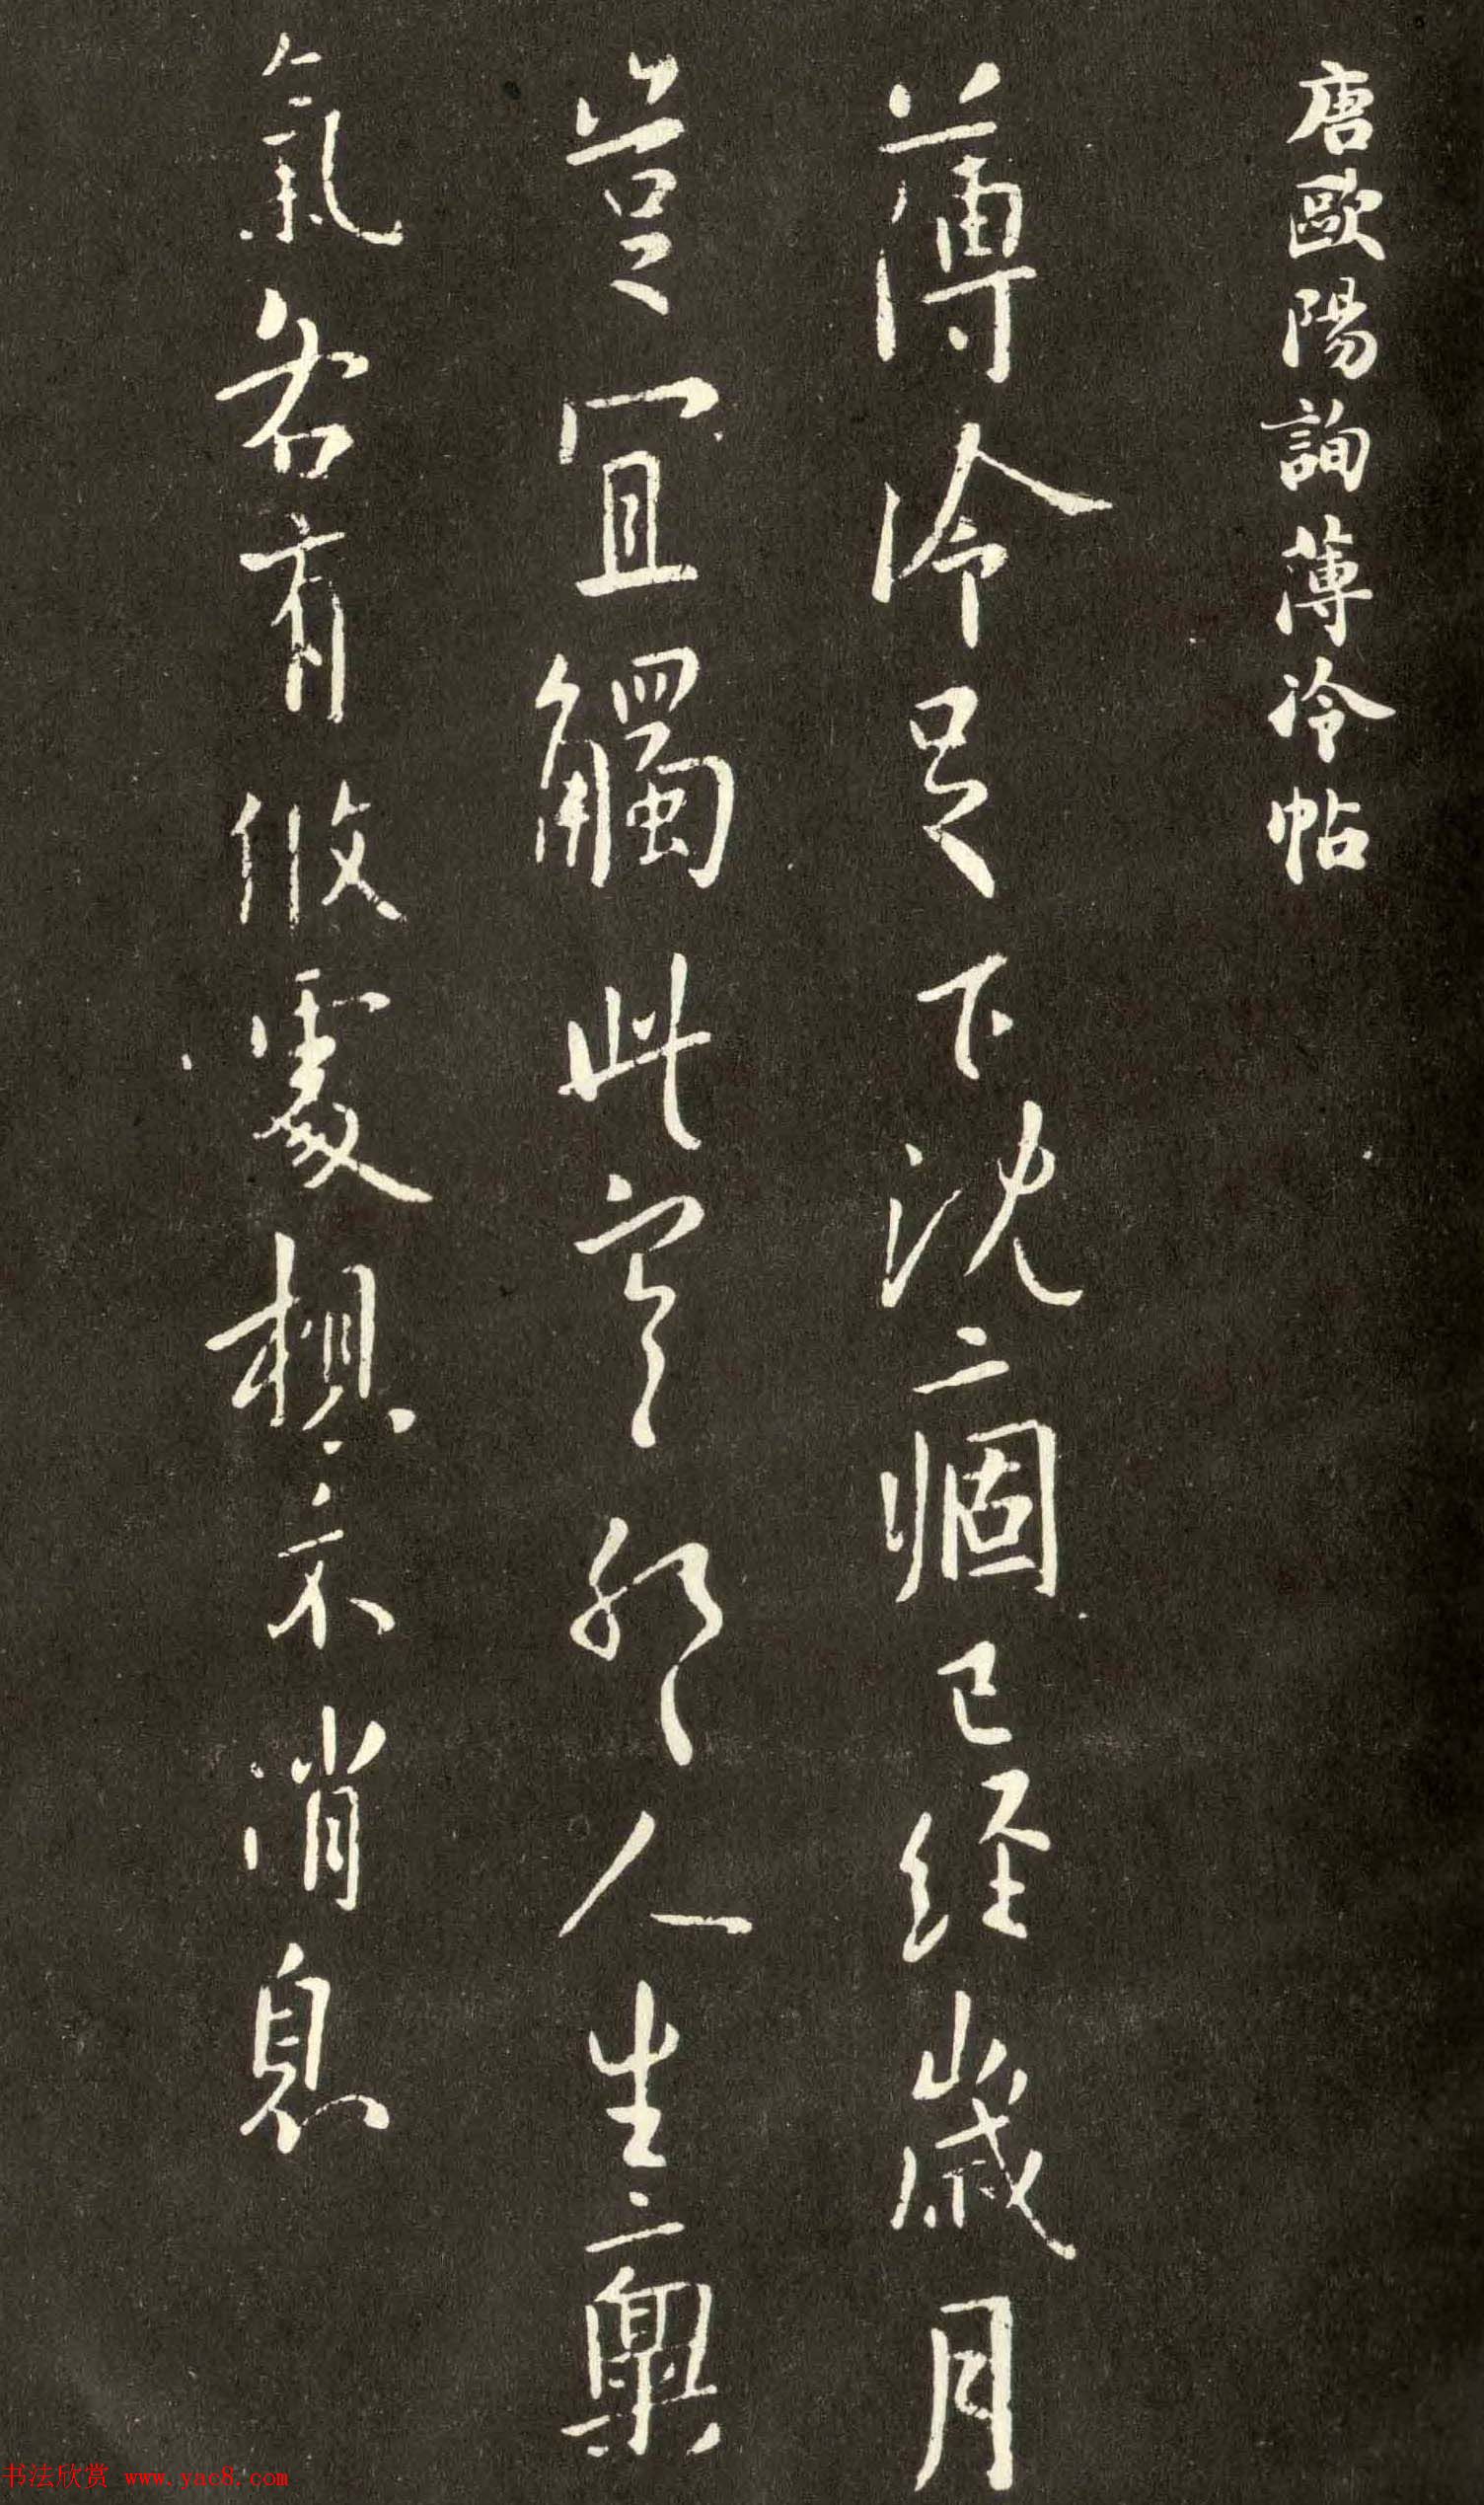 唐歐陽詢薄冷帖
薄冷足下沈痼已經歲月
豈宜觸此寒耶人生稟
氣各有攸處想示消息
书法欣赏 www.yac8.com